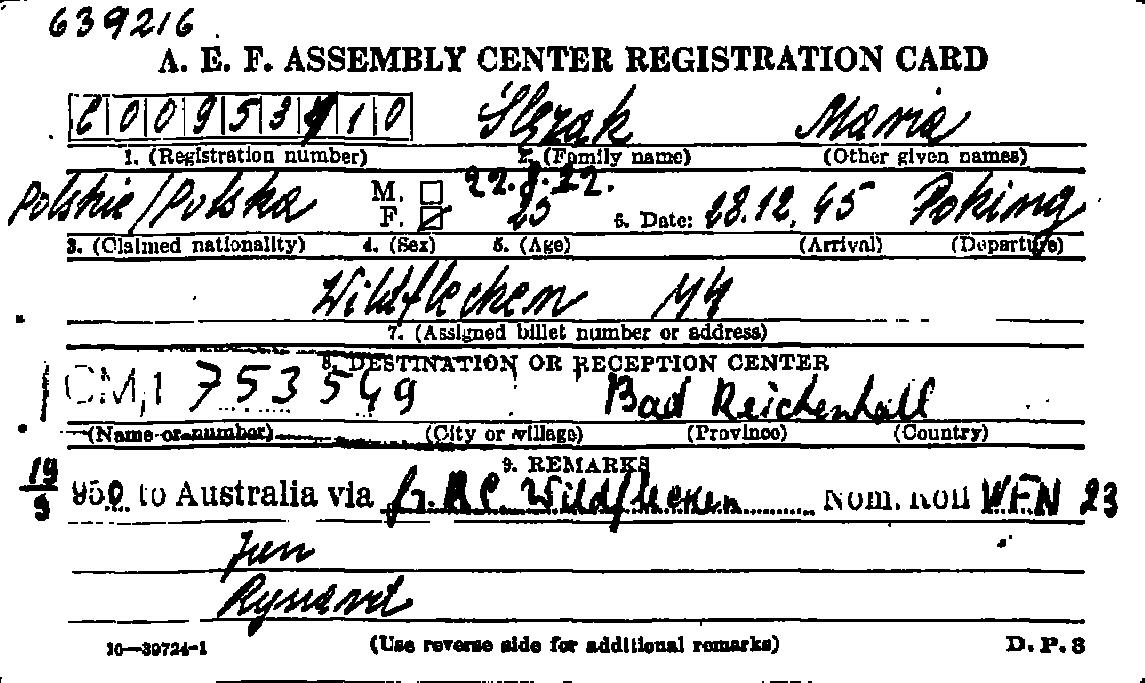 639216
A. E. F. ASSEMBLY CENTER REGISTRATION CARD
C00953410 Slezak Maria
1. (Registration number) 2. (Family name) (Other given names)
22.8.22.
Polskie/Polska M. F. 23 6. Date: 28.12.45 Poking
3. (Claimed nationality) 4. (Sex) 5. (Age) (Arrival) (Departure)
Wildflecken
7. (Assigned billet number or address)
8. DESTINATION OR RECEPTION CENTER
CM,1 753549 Bad Reichenhall
(Name or number) (City or village) (Province) (Country)
9. REMARKS
19/3 950 to Australia via Gr. RC. Wildflecken Nom. Roll WFN 23
10—39724-1 (Use reverse side for additional remarks) D.P.S